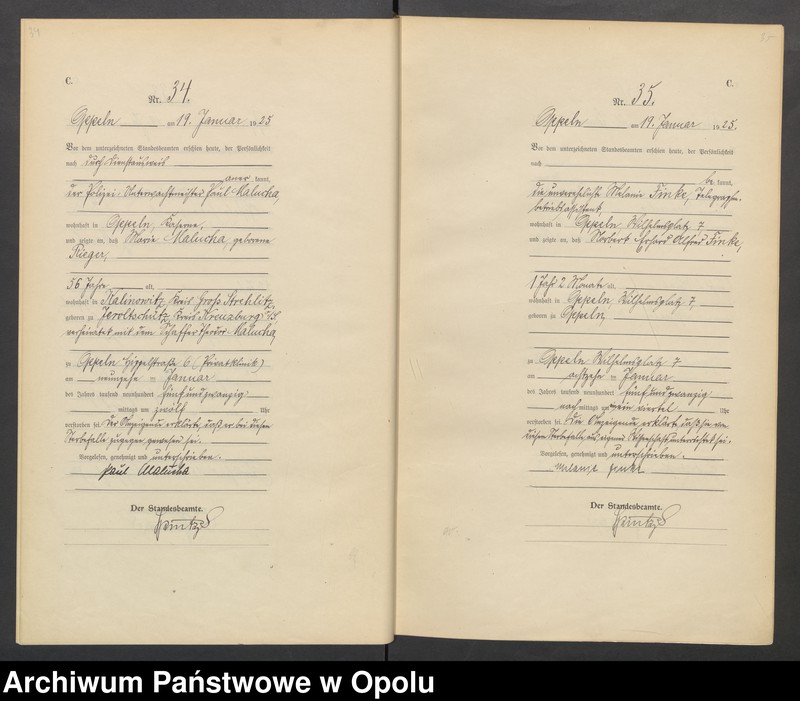 34
C.
Nr. 34.
Oppeln am 19. Januar 1925
Vor dem unterzeichneten Standesbeamten erschien heute, der Persönlichkeit
nach durch Dienstausweis
aner kannt,
der Polizei-Unterwachtmeister Paul Malucha,
wohnhaft in Oppeln, Kaserne,
und zeigte an, daß Marie Malucha, geborene
Rieger,
56 Jahre alt,
wohnhaft in Kalinowitz, Kreis Groß Strehlitz,
geboren zu Jeroltschütz, Kreis Kreuzburg O/S
verheiratet mit dem Schaffer Theodor Malucha,
zu Oppeln Hippelstraße 6 (Privatklinik)
am neunzehn ten Januar
des Jahres tausend neunhundert fünfundzwanzig
mittags um zwölf Uhr
verstorben sei. Der Anzeigende erklärte, daß er bei diesem
Sterbefalle zugegen gewesen sei.
Vorgelesen, genehmigt und unterschrieben.
Paul Malucha
Der Standesbeamte.
35
C.
Nr. 35.
Oppeln am 19. Januar 1925.
Vor dem unterzeichneten Standesbeamten erschien heute, der Persönlichkeit
nach
be kannt,
die unverehelichte Melanie Finke, Telegraphen-
betriebsassistent,
wohnhaft in Oppeln, Wilhelmsplatz 7
und zeigte an, daß Norbert Erhard Alfred Finke,
1 Jahr 2 Monate alt,
wohnhaft in Oppeln, Wilhelmsplatz 7,
geboren zu Oppeln,
zu Oppeln Wilhelmsplatz 7
am achtzehn ten Januar
des Jahres tausend neunhundert fünfundzwanzig
nach mittags um viertel Uhr
verstorben sei. Die Anzeigende erklärte, daß sie von
diesem Sterbefalle aus eigener Wissenschaft unterrichtet sei.
Vorgelesen, genehmigt und unterschrieben.
Melanie Finke
Der Standesbeamte.
Archiwum Państwowe w Opolu